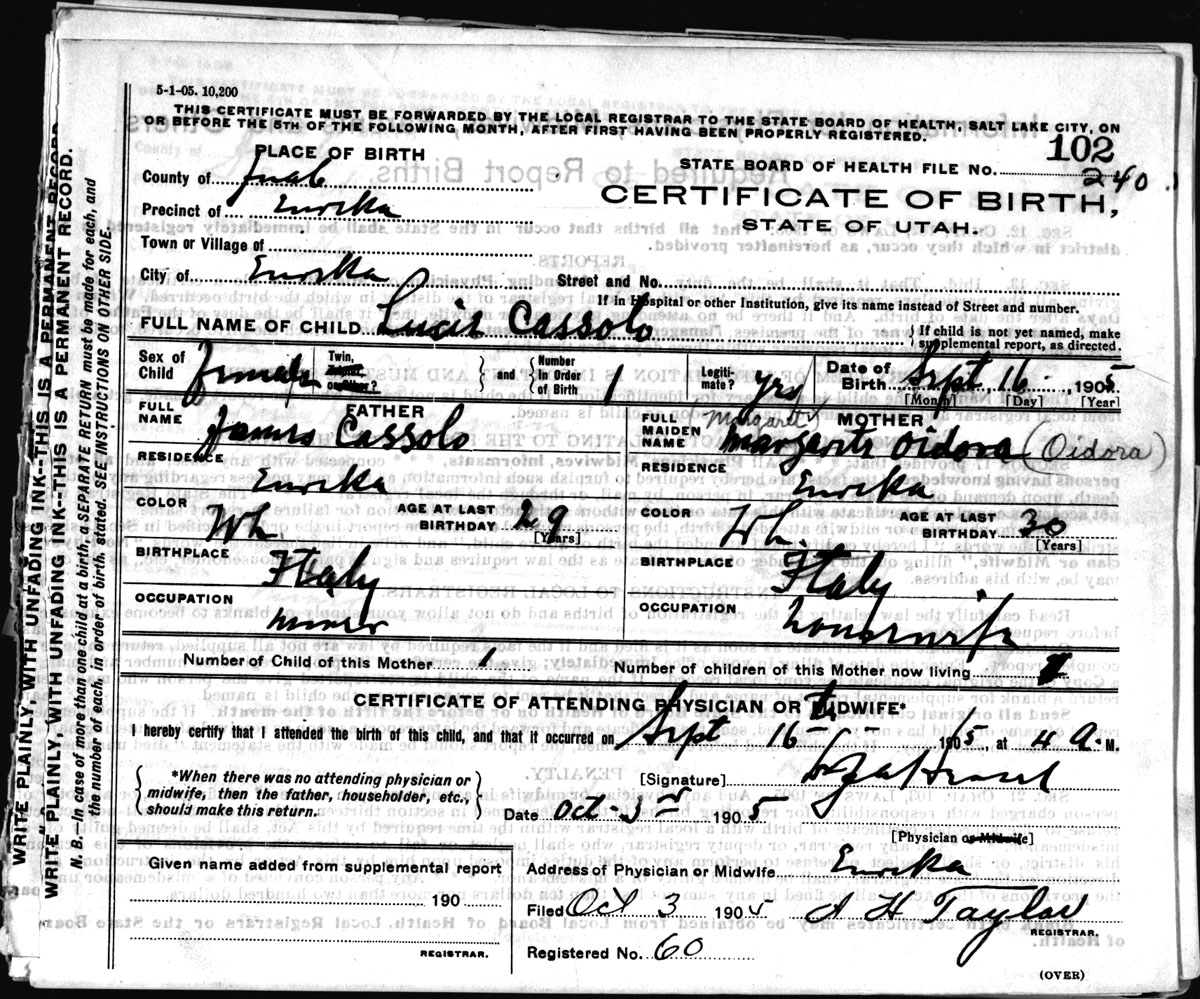 5-1-05. 10,200
THIS CERTIFICATE MUST BE FORWARDED BY THE LOCAL REGISTRAR TO THE STATE BOARD OF HEALTH, SALT LAKE CITY, ON
OR BEFORE THE 5TH OF THE FOLLOWING MONTH, AFTER FIRST HAVING BEEN PROPERLY REGISTERED.
102
PLACE OF BIRTH
STATE BOARD OF HEALTH FILE No. 240
County of Juab
CERTIFICATE OF BIRTH,
Precinct of Eureka
STATE OF UTAH.
Town or Village of
City of Eureka Street and No.
If in Hospital or other Institution, give its name instead of Street and number.
FULL NAME OF CHILD Lucie Cassolo { If child is not yet named, make supplemental report, as directed.
Sex of Child Female Twin, Triplet, or Other? } and { Number In Order of Birth 1 Legiti- mate? yes Date of Birth Sept 16 1905
[Month] [Day] [Year]
FULL NAME FATHER James Cassolo
FULL MAIDEN NAME MOTHER Margaret Margarite Oidora (Oidora)
RESIDENCE Eureka
RESIDENCE Eureka
COLOR Wh. AGE AT LAST BIRTHDAY 29 [Years]
COLOR Wh. AGE AT LAST BIRTHDAY 30 [Years]
BIRTHPLACE Italy
BIRTHPLACE Italy
OCCUPATION miner
OCCUPATION housewife
Number of Child of this Mother 1 Number of children of this Mother now living 1
CERTIFICATE OF ATTENDING PHYSICIAN OR MIDWIFE*
I hereby certify that I attended the birth of this child, and that it occurred on Sept 16th 1905, at 4 A. M.
{ *When there was no attending physician or
midwife, then the father, householder, etc.,
should make this return. }
[Signature]
Date Oct-3rd 1905
[Physician or Midwife]
Given name added from supplemental report
190
REGISTRAR.
Address of Physician or Midwife Eureka
Filed Oct 3 1905 A H Taylor
REGISTRAR.
Registered No. 60
(OVER)
WRITE PLAINLY WITH UNFADING INK--THIS IS A PERMANENT RECORD
WRITE PLAINLY WITH UNFADING INK--THIS IS A PERMANENT RECORD.
N. B.—In case of more than one child at a birth, a SEPARATE RETURN must be made for each, and
the number of each, in order of birth, stated. SEE INSTRUCTIONS ON OTHER SIDE.